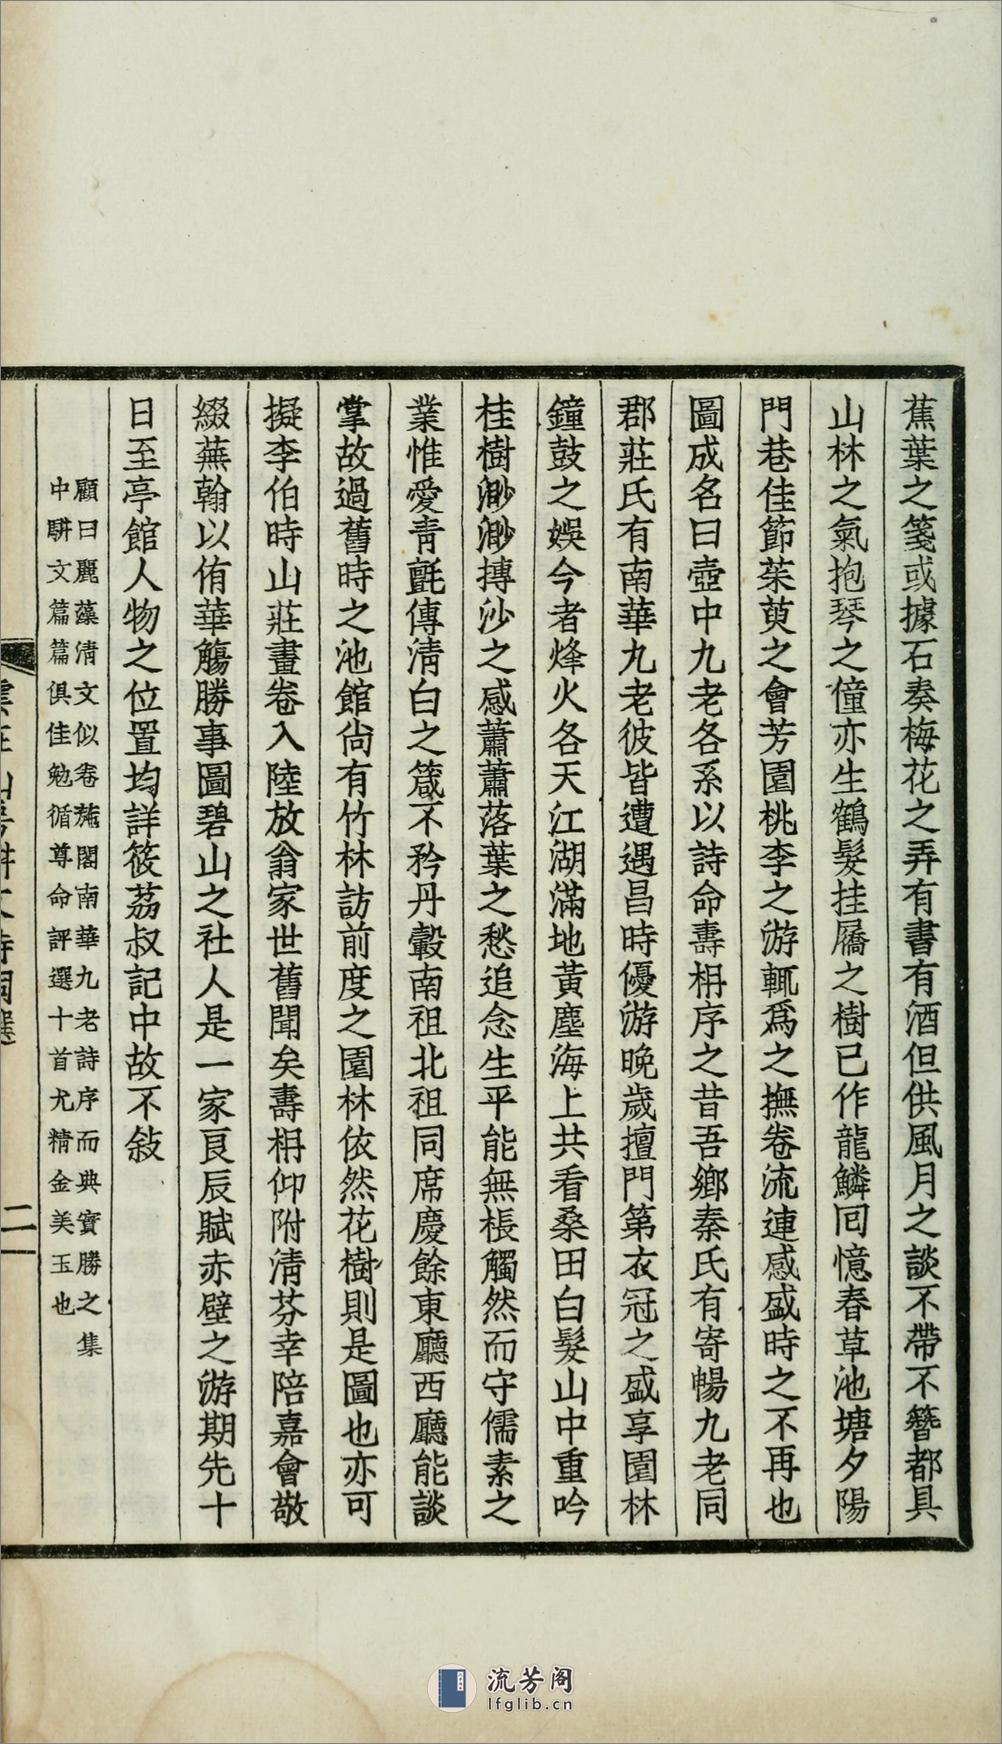 蕉葉之箋或據石奏梅花之弄有書有酒但供風月之談不帶不簪都具
山林之氣抱琴之僮亦生鶴髮挂屩之樹已作龍鱗囘憶春草池塘夕陽
門巷佳節茱萸之會芳園桃李之游輒爲之撫卷流連感盛時之不再也
圖成名曰壺中九老各系以詩命壽枏序之昔吾鄉秦氏有寄暢九老同
郡莊氏有南華九老彼皆遭遇昌時優游晚歲擅門第衣冠之盛享園林
鐘鼓之娛今者烽火各天江湖滿地黃塵海上共看桑田白髮山中重吟
桂樹渺渺摶沙之感蕭蕭落葉之愁追念生平能無棖觸然而守儒素之
業惟愛青氈傳清白之箴不矜丹轂南祖北祖同席慶餘東廳西廳能談
掌故過舊時之池館尙有竹林訪前度之園林依然花樹則是圖也亦可
擬李伯時山莊畫卷入陸放翁家世舊聞矣壽枏仰附清芬幸陪嘉會敬
綴蕪翰以侑華觴勝事圖碧山之社人是一家良辰賦赤壁之游期先十
日至亭館人物之位置均詳筱荔叔記中故不敍
顧曰麗藻清文似卷葹閣南華九老詩序而典實勝之集
中騈文篇篇俱佳勉循尊命評選十首尤精金美玉也
二
流芳阁
lfglib.cn